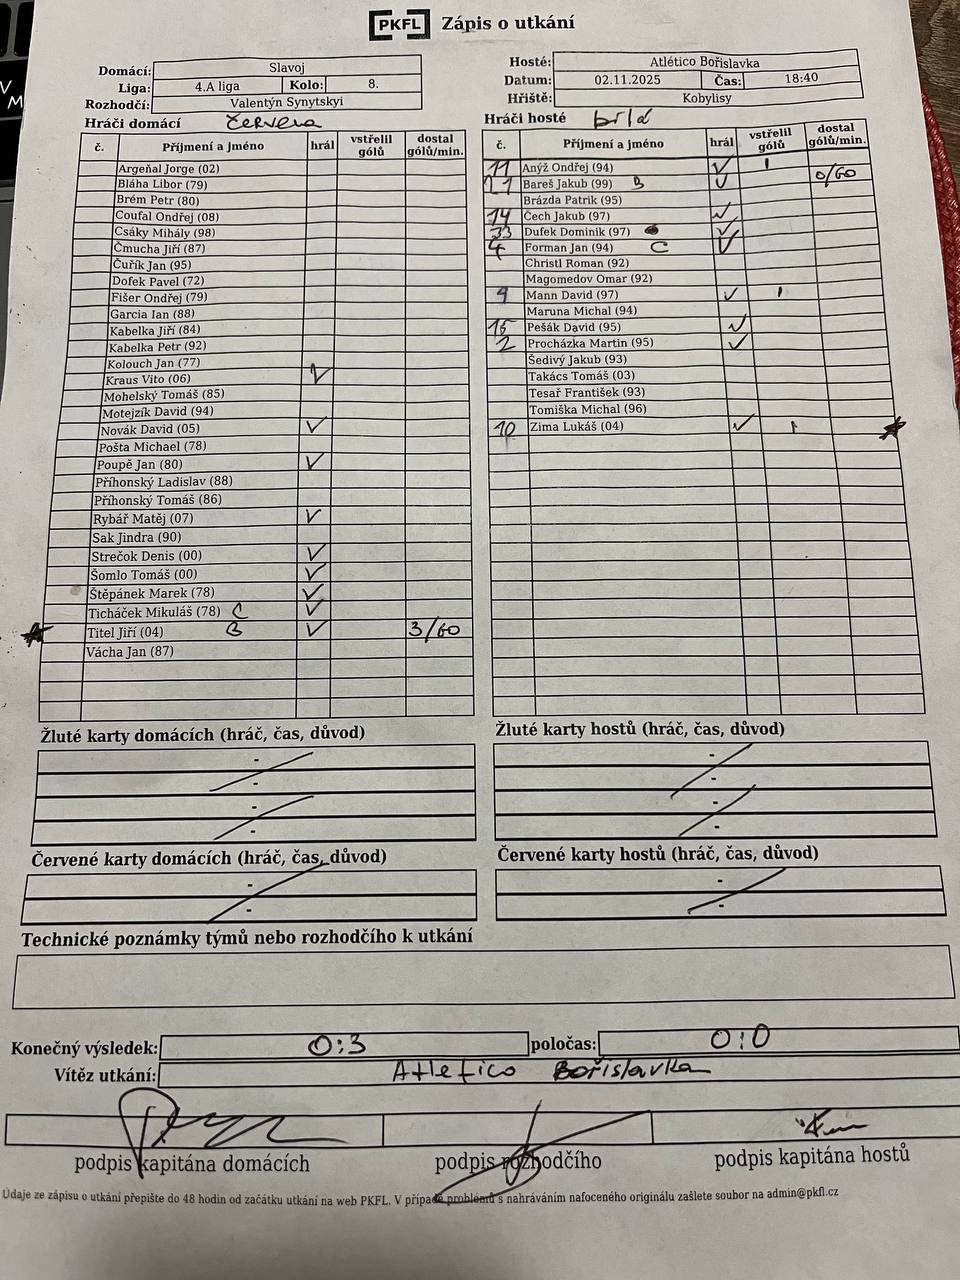 PKFL Zápis o utkání
Domácí: Slavoj
Liga: 4.A liga Kolo: 8.
Rozhodčí: Valentýn Synytskyi
Hosté: Atlético Bořislavka
Datum: 02.11.2025 Čas: 18:40
Hřiště: Kobylisy
Hráči domácí červena
č. Příjmení a jméno hrál vstřelil gólů dostal gólů/min.
Argeňal Jorge (02)
Bláha Libor (79)
Brém Petr (80)
Coufal Ondřej (08)
Csáky Mihály (98)
Čmucha Jiří (87)
Čuřík Jan (95)
Dofek Pavel (72)
Fišer Ondřej (79)
Garcia Ian (88)
Kabelka Jiří (84)
Kabelka Petr (92)
Kolouch Jan (77)
Kraus Vito (06) ✓
Mohelský Tomáš (85)
Motejzík David (94)
Novák David (05) ✓
Pošta Michael (78)
Poupě Jan (80) ✓
Příhonský Ladislav (88)
Příhonský Tomáš (86)
Rybář Matěj (07) ✓
Sak Jindra (90)
Strečok Denis (00) ✓
Šomlo Tomáš (00) ✓
Štěpánek Marek (78) ✓
Ticháček Mikuláš (78) C ✓
Titel Jiří (04) B ✓ 3/60
Vácha Jan (87)
Hráči hosté bílá
č. Příjmení a jméno hrál vstřelil gólů dostal gólů/min.
11 Anýž Ondřej (94) ✓ 1
21 Bareš Jakub (99) B ✓ 0/60
Brázda Patrik (95)
14 Čech Jakub (97) ✓
33 Dufek Dominik (97) ✓
4 Forman Jan (94) C ✓
Christl Roman (92)
Magomedov Omar (92)
9 Mann David (97) ✓ 1
Maruna Michal (94)
15 Pešák David (95) ✓
2 Procházka Martin (95) ✓
Šedivý Jakub (93)
Takács Tomáš (03)
Tesař František (93)
Tomiška Michal (96)
10 Zima Lukáš (04) ✓ 1
Žluté karty domácích (hráč, čas, důvod)
-
-
-
-
Žluté karty hostů (hráč, čas, důvod)
-
-
-
-
Červené karty domácích (hráč, čas, důvod)
-
-
Červené karty hostů (hráč, čas, důvod)
-
-
Technické poznámky týmů nebo rozhodčího k utkání
Konečný výsledek: 0:3 poločas: 0:0
Vítěz utkání: Atletico Bořislavka
podpis kapitána domácích podpis rozhodčího podpis kapitána hostů
Údaje ze zápisu o utkání přepište do 48 hodin od začátku utkání na web PKFL. V případě problémů s nahráváním nafoceného originálu zašlete soubor na admin@pkfl.cz